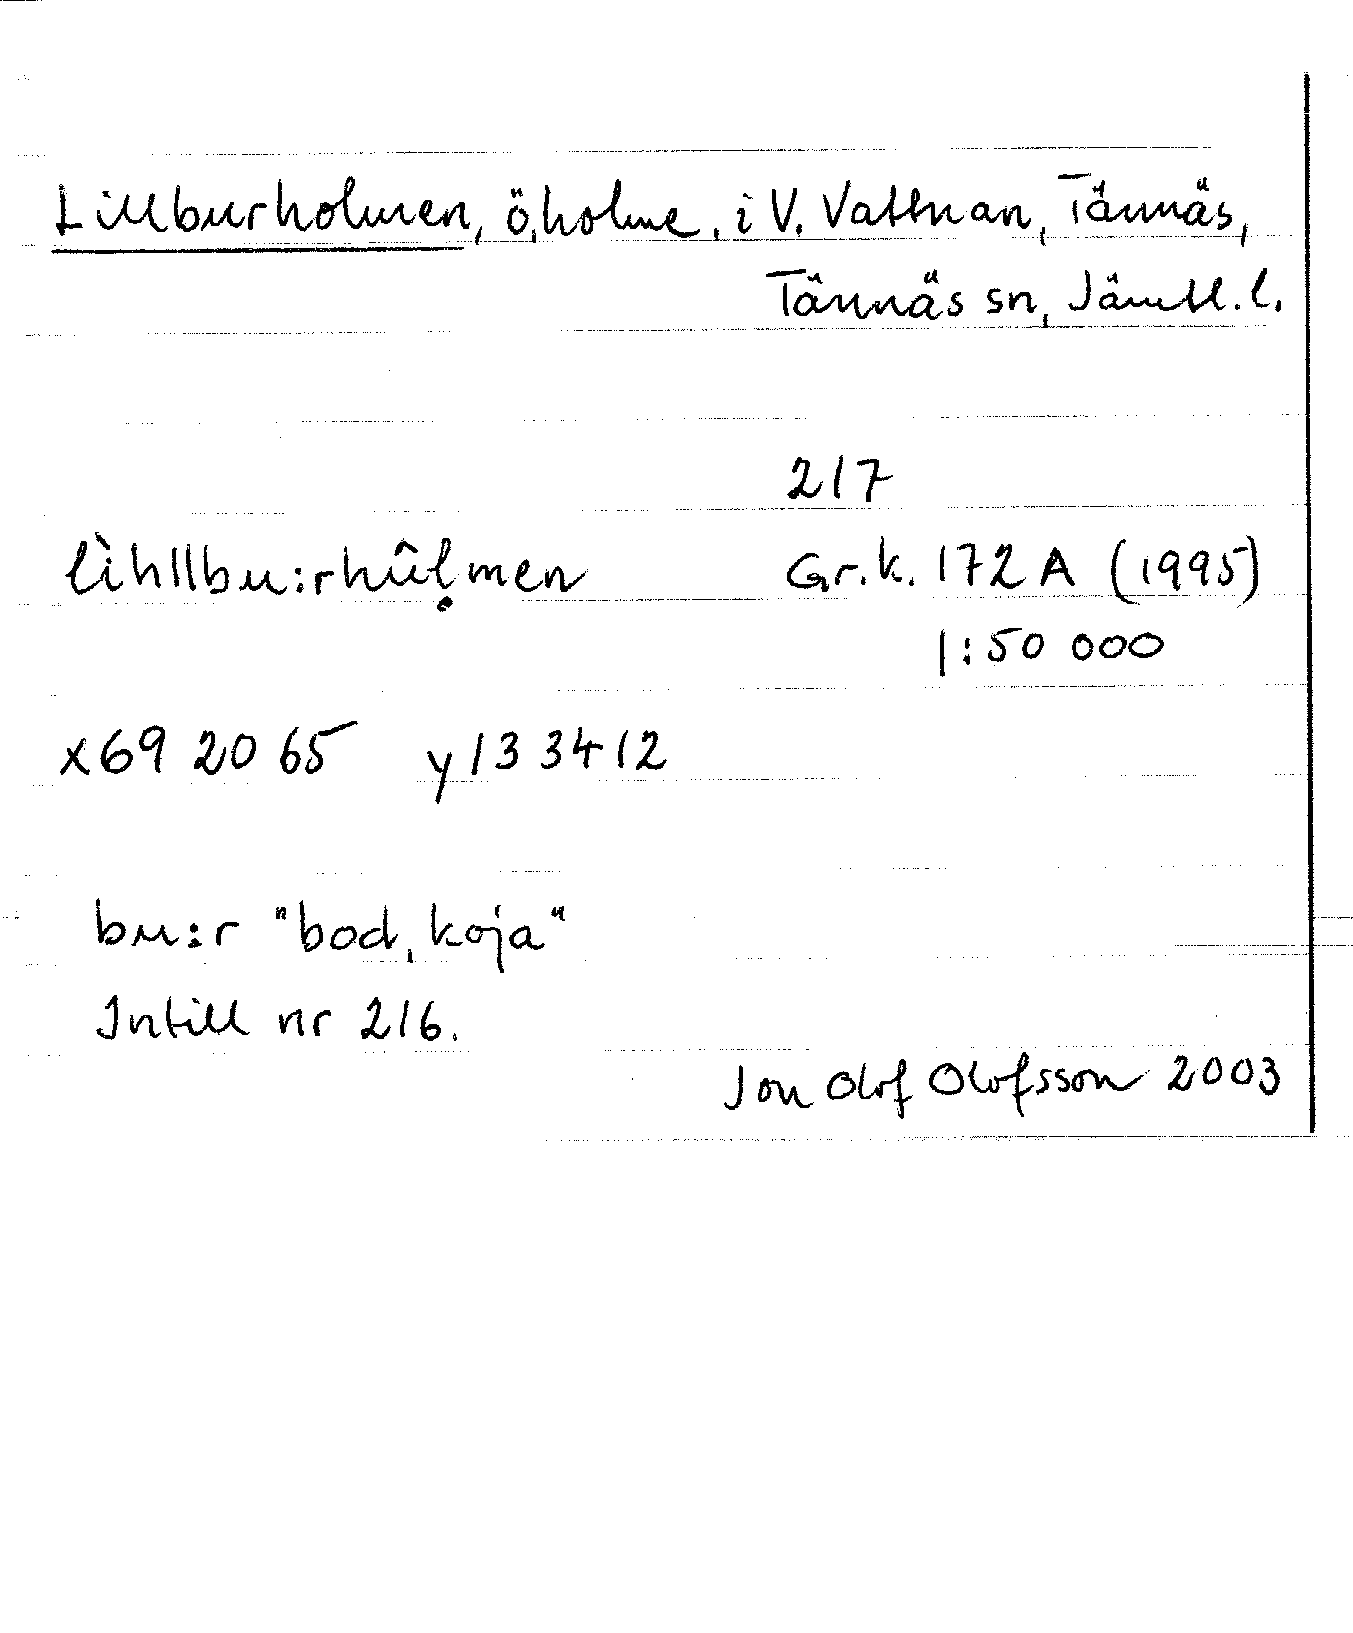 Lillburholmen, ö, holme, i V. Vattnan, Tännäs,
Tännäs sn, Jämtl. l.
217
lìhllbu:rhûḷmen Gr.k. 172 A (1995)
1:50 000
x69 20 65 y13 34 12
bu:r "bod, koja"
Intill nr 216.
Jon Olof Olofsson 2003